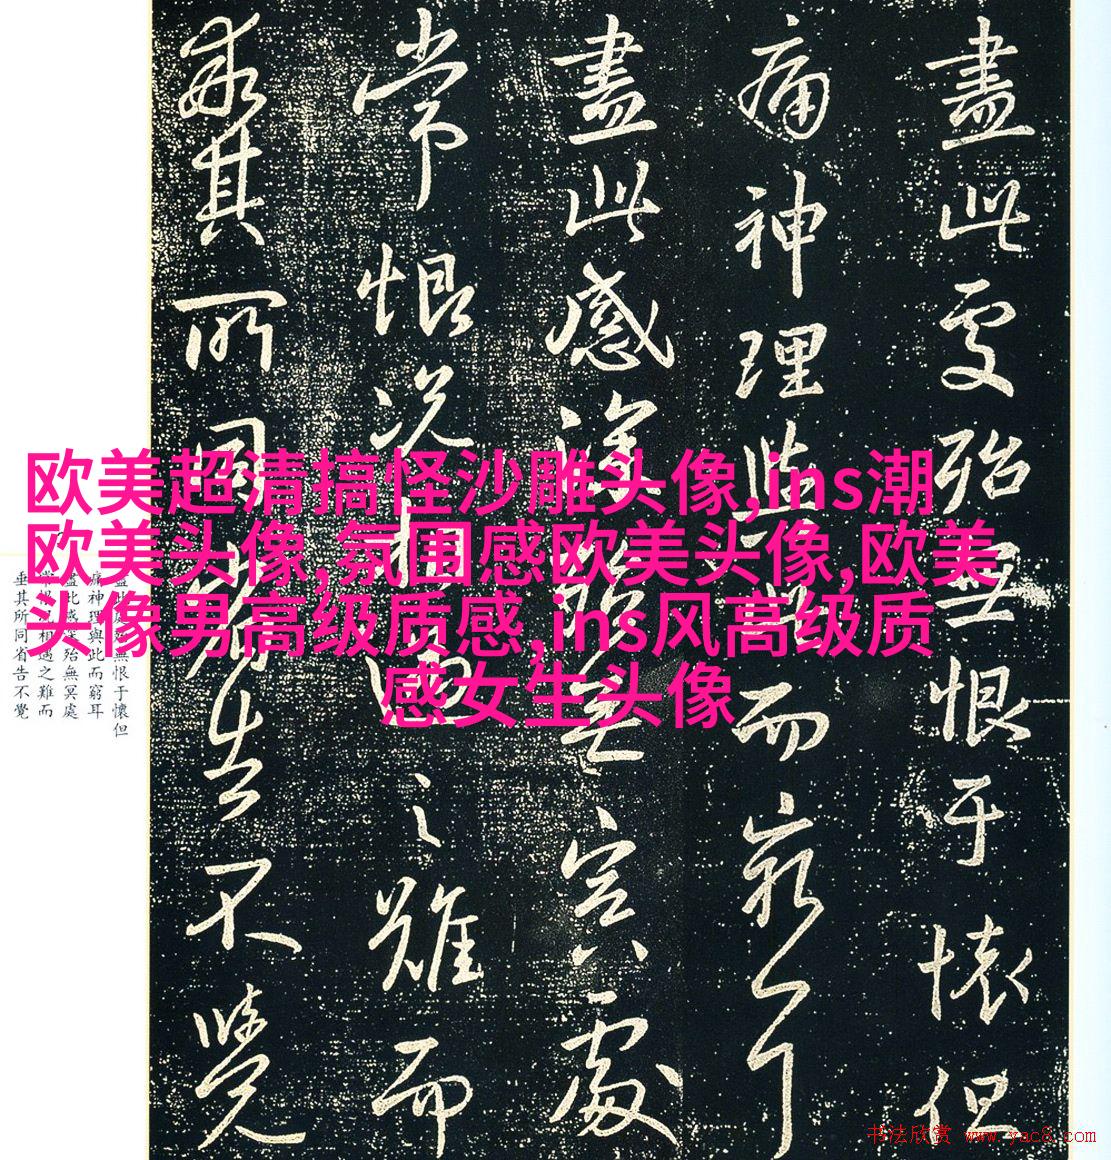 盡此處殆無恨于懷但
痛神理與此而窮耳
盡此感深殆無冥處
常恨況相遇之難而
垂其所同省告不覺
欧美超清搞怪沙雕头像,ins潮
欧美头像,氛围感欧美头像,欧美
头像男高级质感,ins风高级质
感女生头像
盡此處殆無恨于懷但
痛神理與此而窮耳
盡此感深殆無冥處
常恨況相遇之難而
垂其所同省告不覺
书法欣赏 www.yac8.com